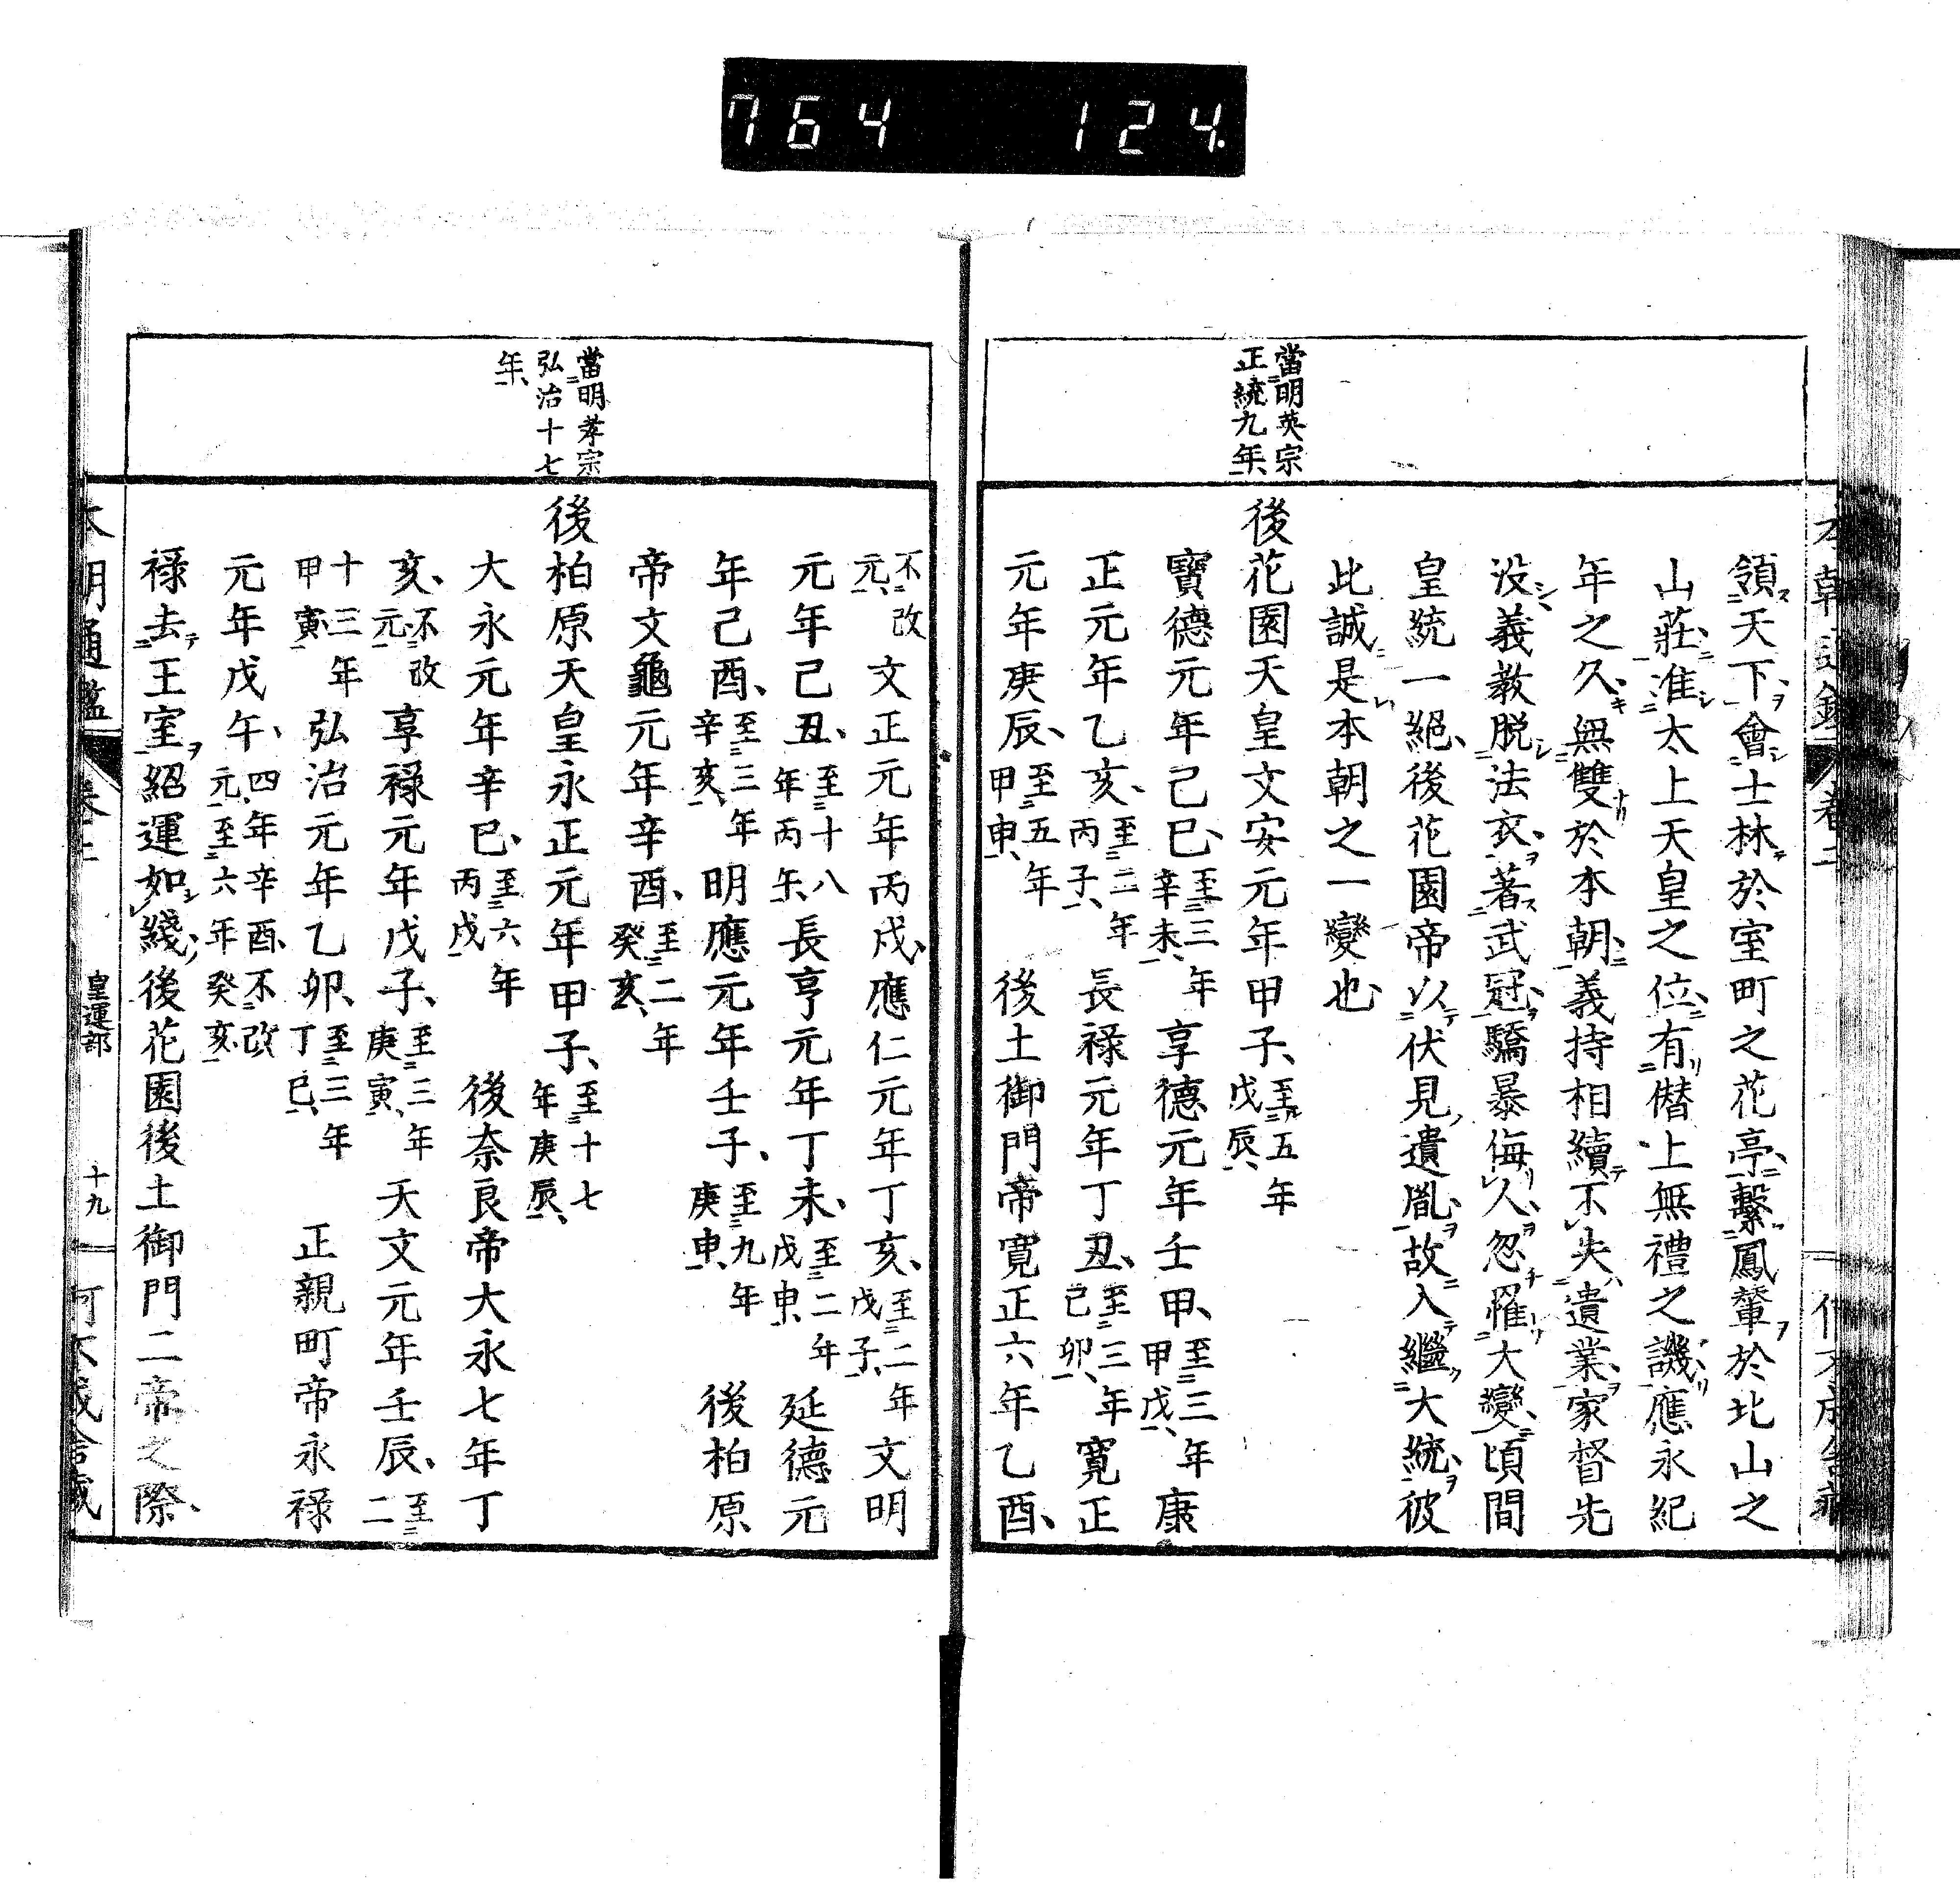 764 124.
當明英宗
正統九年
領天下會士林於室町之花亭繫鳳輦於北山之
山莊准太上天皇之位有僭上無禮之譏應永紀
年之久無雙於本朝義持相續不失遺業家督先
没義教脱法衣著武冠驕暴侮人忽罹大變頃間
皇統一絕後花園帝以伏見遺胤故入繼大統彼
此誠是本朝之一變也
後花園天皇文安元年甲子至五年戊辰
寶德元年己巳至三年辛未享德元年壬申至三年甲戌康
正元年乙亥至二年丙子長祿元年丁丑至三年己卯寬正
元年庚辰至五年甲申後土御門帝寬正六年乙酉
當明孝宗
弘治十七
年
不改元文正元年丙戌應仁元年丁亥至二年戊子文明
元年己丑至十八年丙午長享元年丁未至二年戊申延德元
年己酉至三年辛亥明應元年壬子至九年庚申後柏原
帝文龜元年辛酉至二年癸亥
後柏原天皇永正元年甲子至十七年庚辰
大永元年辛巳至六年丙戌後奈良帝大永七年丁
亥不改元享祿元年戊子至三年庚寅天文元年壬辰至二
十三年甲寅弘治元年乙卯至三年丁巳正親町帝永祿
元年戊午四年辛酉不改元至六年癸亥
祿去王室紹運如綫後花園後土御門二帝之際
本朝通鑑 皇運部 十九